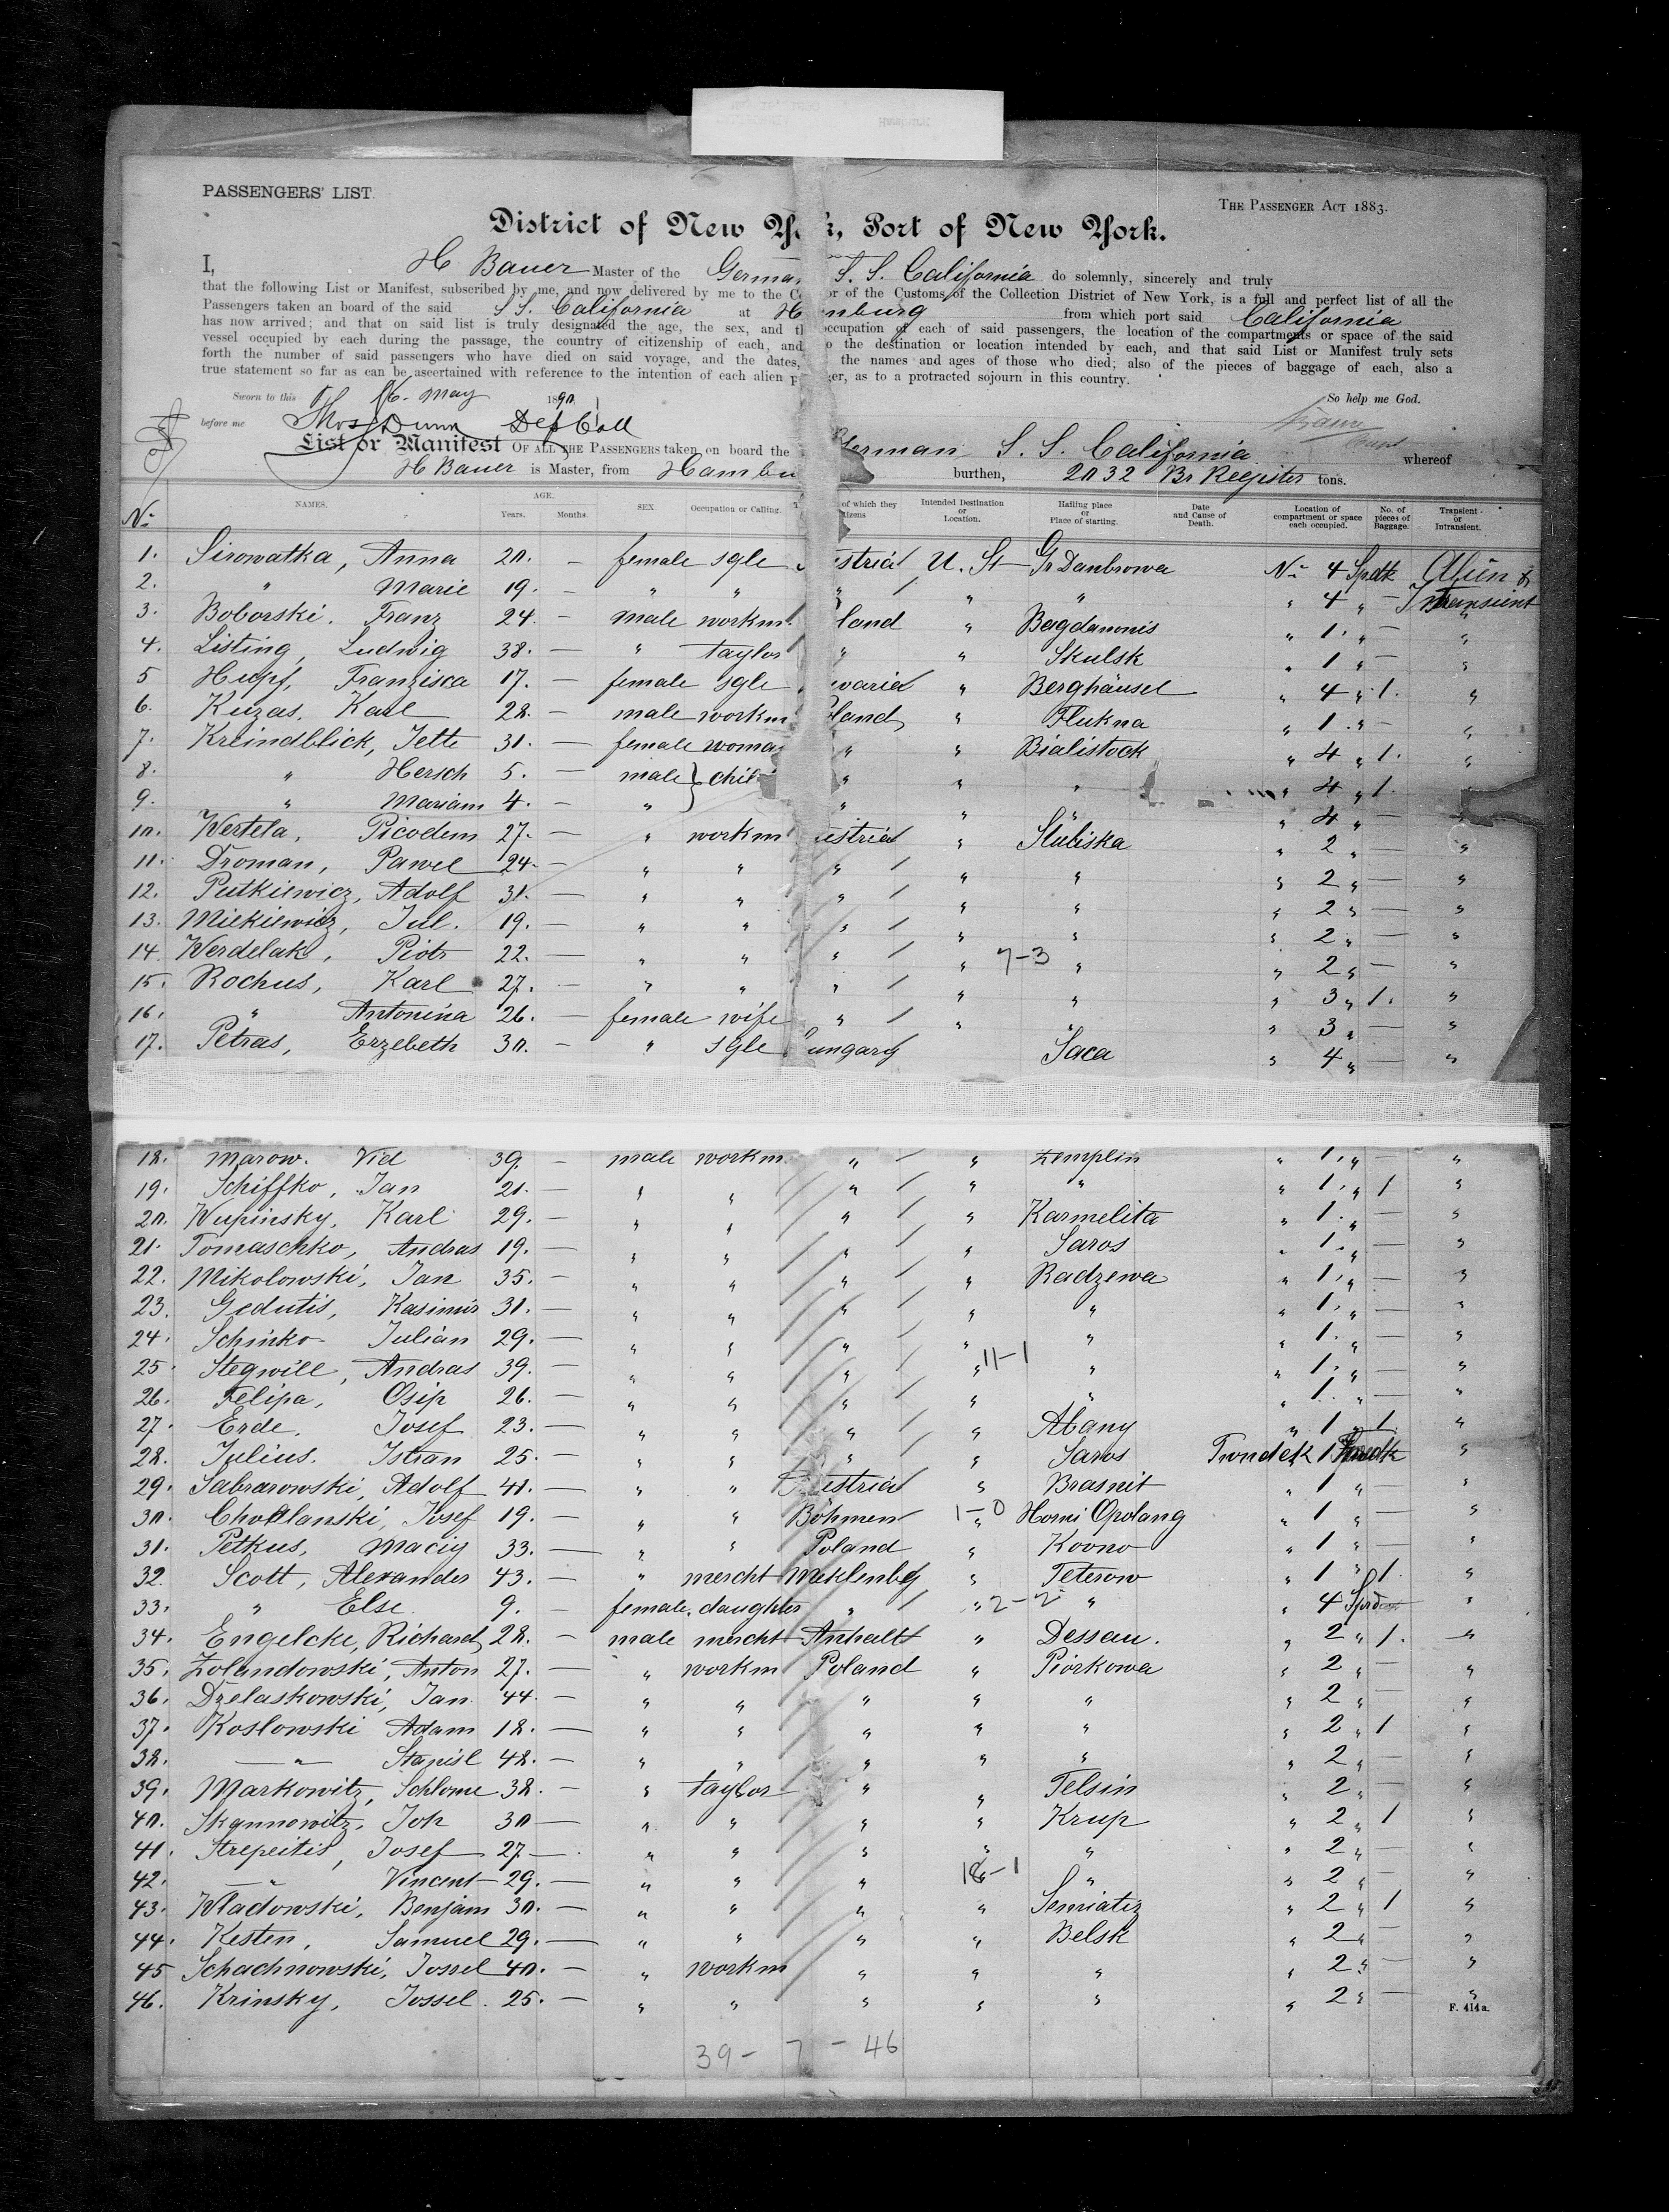 PASSENGERS' LIST.
THE PASSENGER ACT 1883.
District of New York, Port of New York.
I, H Bauer Master of the German S. S. California do solemnly, sincerely and truly
that the following List or Manifest, subscribed by me, and now delivered by me to the C or of the Customs of the Collection District of New York, is a full and perfect list of all the
Passengers taken on board of the said S S. California at H nburg from which port said California
has now arrived; and that on said list is truly designated the age, the sex, and th occupation of each of said passengers, the location of the compartments or space of the said
vessel occupied by each during the passage, the country of citizenship of each, and o the destination or location intended by each, and that said List or Manifest truly sets
forth the number of said passengers who have died on said voyage, and the dates, the names and ages of those who died; also of the pieces of baggage of each, also a
true statement so far as can be ascertained with reference to the intention of each alien p ger, as to a protracted sojourn in this country.
Sworn to this 16. May 1890. So help me God.
before me Thos Dunn Dep Coll
List or Manifest OF ALL THE PASSENGERS taken on board the German S. S. California whereof
H Bauer is Master, from Hambu burthen, 2032 Br Register tons.
No NAMES. AGE. Years. Months. SEX Occupation or Calling. of which they citizens Intended Destination or Location. Hailing place or Place of starting. Date and Cause of Death. Location of compartment or space each occupied. No. of pieces of Baggage. Transient or Intransient.
1. Sirowatka, Anna 20. — female sgle ustria U. St Gr Danbrowa No 4 Spdk Alien &
2. " Marie 19. — " " " " " " 4 " — Intransient
3. Boborski. Franz 24. — male workm. land " Bagdanonis " 1. " — "
4. Listing, Ludwig 38. — " taylor " " Skulsk " 1 " — "
5 Hupf, Franziska 17. — female sgle avaria " Berghäusel " 4 " 1. "
6. Kuzas, Karl 28. — male workm land " Flukna " 1. " — "
7. Kreindblick, Jette 31. — female woma " " Bialistock " 4 " 1. "
8. " Hersch 5. — male } chil " " " " 4 " 1.
9. " Mariam 4. — " } " " " " 4 " —
10. Wertela, Picodem 27. — " workm ustria " Stubiska " 2 " — "
11. Droman, Pawel 24. — " " " " " " 2 " — "
12. Putkiewicz, Adolf 31. — " " " " " " 2 " — "
13. Mickiewicz, Jul. 19. — " " " " " " 2 " — "
14. Werdelak, Piotr 22. — " " " " 7-3 " " 2 " — "
15. Rochus, Karl 27. — " " " " " " 3 " 1. "
16. " Antonina 26. — female wife " " " " 3 " — "
17. Petras, Erzebeth 30. — " sgle ungary Saca " 4 " — "
18. Marow. Vid 39. — male workm. " " Zemplin " 1. " — "
19. Schiffko, Jan 21. — " " " " " " 1. " 1 "
20. Wupinsky, Karl 29. — " " " " Karmelita " 1. " — "
21. Tomaschko, Andras 19. — " " " " Saros " 1. " — "
22. Mikolowski, Jan 35. — " " " " Radzewa " 1. " — "
23. Gedutis, Kasimir 31. — " " " " " " 1. " — "
24. Schinko Julian 29. — " " " " " " 1. " — "
25. Stegwill, Andras 39. — " " " " 11-1 " " 1. " — "
26. Felipa, Osip 26. — " " " " " " 1. " — "
27. Erde, Josef 23. — " " " " Abany " 1 " 1. "
28. Julius. Istran 25. — " " " " Saros 1 "
29. Sabrarowski, Adolf 41. — " " Austria " Brasnit " 1 " — "
30. Chotlanski, Josef 19. — " " Böhmen 1-0 " Homi Opolang " 1 " — "
31. Petkus, Maciy 33. — " " Poland " Kovno " 1 " — "
32. Scott, Alexander 43. — " mercht Meklenbg " Teterow " 1 " 1. "
33. " Else 9. — female daughter " " 2-2 " " 4 Spd "
34. Engelcke, Richard 28. — male mercht Anhalt " Dessau. " 2 " 1. "
35. Zolandowski, Anton 27. — " workm Poland " Piorkowa " 2 " — "
36. Dzelaskowski, Jan 44. — " " " " " " 2 " — "
37. Koslowski Adam 18. — " " " " " " 2 " 1 "
38. — " — Stanisl 48. — " " " " " " 2 " — "
39. Markowitz, Schlome 38. — " taylor " " Telsin " 2 " — "
40. Skannowitz, Joh 30 — " " " " Krup " 2 " 1 "
41. Strepeitis, Josef 27 — " " " " " " 2 " — "
42. — " Vincent 29. — " " " 18-1 " " 2 " — "
43. Wladowski, Benjam 30. — " " " " Semiatiz " 2 " 1 "
44. Kesten, Samuel 29. — " " " " Belsk " 2 " — "
45 Schachnowski, Jossel 40. — " workm " " " " 2 " — "
46. Krinsky, Jossel. 25. — " " " " " " 2 " — "
F. 414a.
39 - 7 - 46